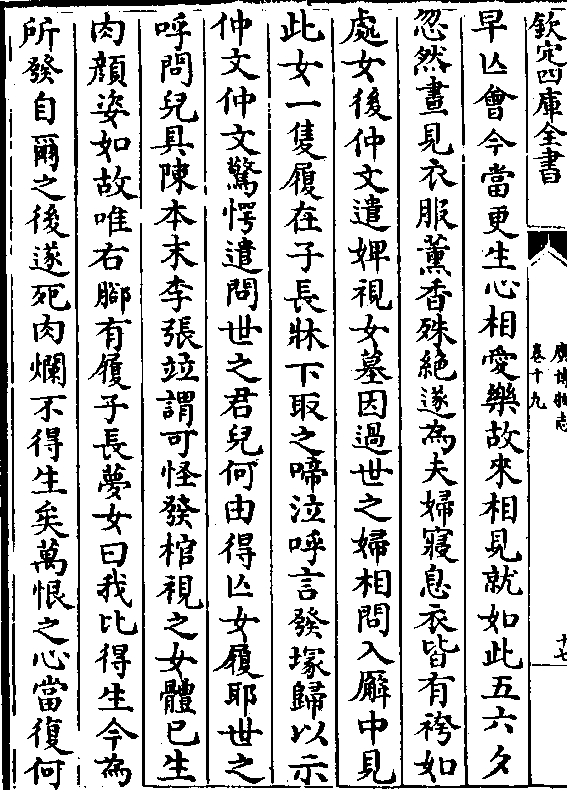 欽定四庫全書
廣博物志
卷十九
十七
早亾會今當更生心相愛樂故來相見就如此五六夕
忽然晝見衣服薰香殊絶遂為夫婦寢息衣皆有袴如
處女後仲文遣婢視女墓因過世之婦相問入廨中見
此女一隻履在子長牀下取之啼泣呼言發塚歸以示
仲文仲文驚愕遣問世之君兒何由得亾女履耶世之
呼問兒具陳本末李張竝謂可怪發棺視之女體已生
肉顔姿如故唯右腳有履子長夢女曰我比得生今為
所發自爾之後遂死肉爛不得生矣萬恨之心當復何